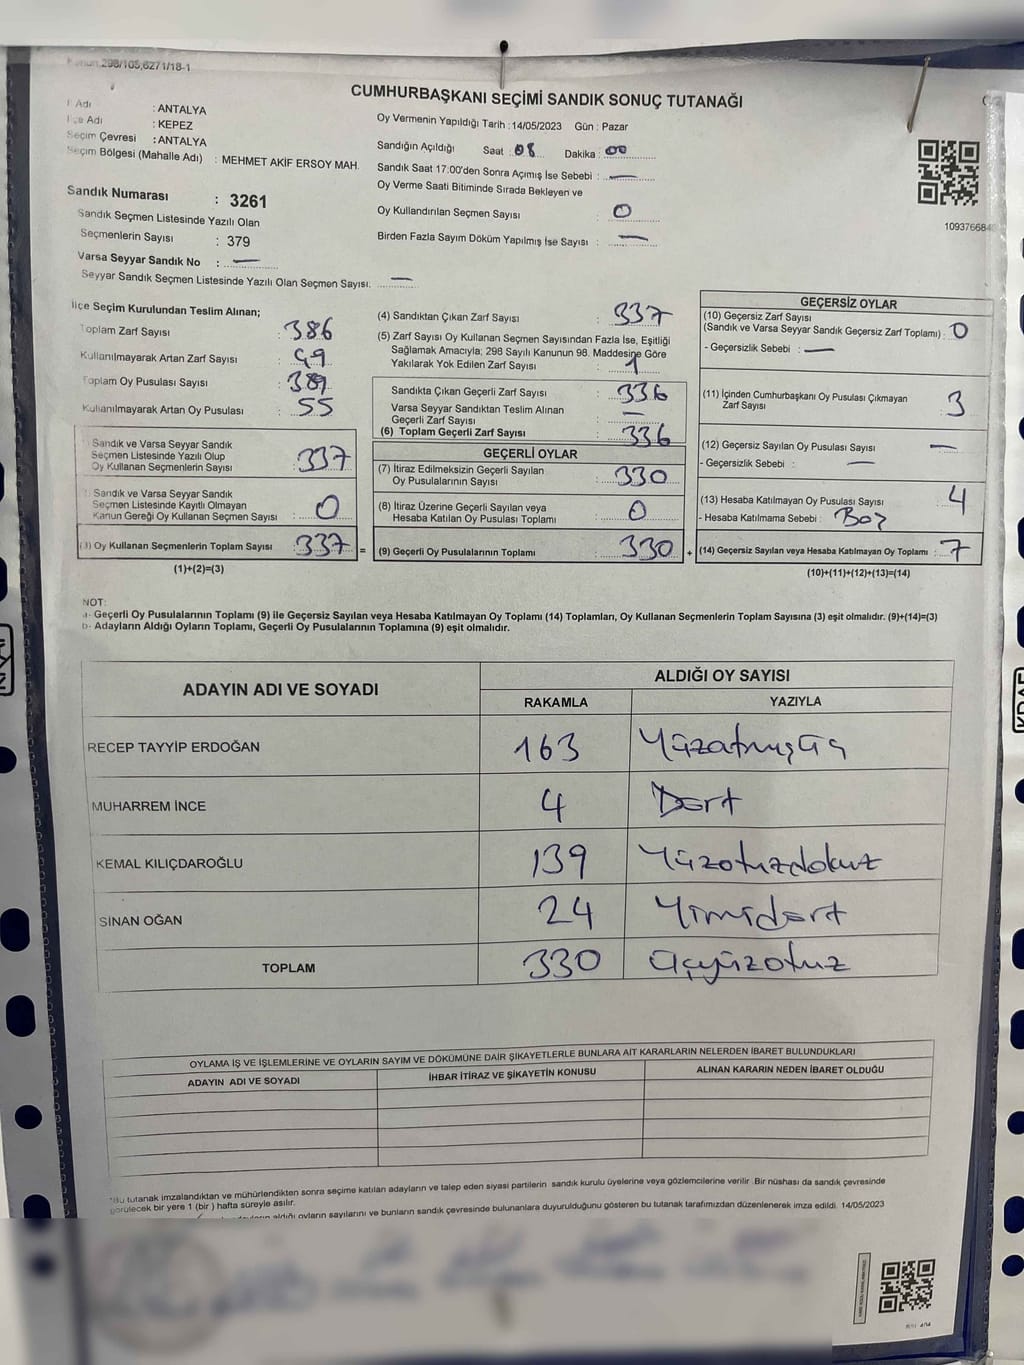 Kanun,298/105,6271/18-1
CUMHURBAŞKANI SEÇİMİ SANDIK SONUÇ TUTANAĞI
Adı : ANTALYA
İlçe Adı : KEPEZ
Seçim Çevresi : ANTALYA
Seçim Bölgesi (Mahalle Adı) : MEHMET AKİF ERSOY MAH.
Sandık Numarası : 3261
Sandık Seçmen Listesinde Yazılı Olan
Seçmenlerin Sayısı : 379
Varsa Seyyar Sandık No : —
Seyyar Sandık Seçmen Listesinde Yazılı Olan Seçmen Sayısı. —
Oy Vermenin Yapıldığı Tarih : 14/05/2023 Gün : Pazar
Sandığın Açıldığı Saat : 08 Dakika : 00
Sandık Saat 17:00'den Sonra Açımış İse Sebebi : —
Oy Verme Saati Bitiminde Sırada Bekleyen ve
Oy Kullandırılan Seçmen Sayısı : 0
Birden Fazla Sayım Döküm Yapılmış İse Sayısı : —
1093766848
İlçe Seçim Kurulundan Teslim Alınan;
Toplam Zarf Sayısı : 386
Kullanılmayarak Artan Zarf Sayısı : 49
Toplam Oy Pusulası Sayısı : 389
Kullanılmayarak Artan Oy Pusulası : 55
Sandık ve Varsa Seyyar Sandık
Seçmen Listesinde Yazılı Olup
Oy Kullanan Seçmenlerin Sayısı : 337
Sandık ve Varsa Seyyar Sandık
Seçmen Listesinde Kayıtlı Olmayan
Kanun Gereği Oy Kullanan Seçmen Sayısı : 0
(3) Oy Kullanan Seçmenlerin Toplam Sayısı : 337 =
(1)+(2)=(3)
(4) Sandıktan Çıkan Zarf Sayısı : 337
(5) Zarf Sayısı Oy Kullanan Seçmen Sayısından Fazla İse, Eşitliği
Sağlamak Amacıyla; 298 Sayılı Kanunun 98. Maddesine Göre
Yakılarak Yok Edilen Zarf Sayısı : 1
Sandıkta Çıkan Geçerli Zarf Sayısı : 336
Varsa Seyyar Sandıktan Teslim Alınan
Geçerli Zarf Sayısı : —
(6) Toplam Geçerli Zarf Sayısı : 336
GEÇERLİ OYLAR
(7) İtiraz Edilmeksizin Geçerli Sayılan
Oy Pusulalarının Sayısı : 330
(8) İtiraz Üzerine Geçerli Sayılan veya
Hesaba Katılan Oy Pusulası Toplamı : 0
(9) Geçerli Oy Pusulalarının Toplamı : 330 +
GEÇERSİZ OYLAR
(10) Geçersiz Zarf Sayısı
(Sandık ve Varsa Seyyar Sandık Geçersiz Zarf Toplamı) : 0
- Geçersizlik Sebebi : —
(11) İçinden Cumhurbaşkanı Oy Pusulası Çıkmayan
Zarf Sayısı 3
(12) Geçersiz Sayılan Oy Pusulası Sayısı —
- Geçersizlik Sebebi : —
(13) Hesaba Katılmayan Oy Pusulası Sayısı 4
- Hesaba Katılmama Sebebi : Boş
(14) Geçersiz Sayılan veya Hesaba Katılmayan Oy Toplamı : 7
(10)+(11)+(12)+(13)=(14)
NOT:
a- Geçerli Oy Pusulalarının Toplamı (9) ile Geçersiz Sayılan veya Hesaba Katılmayan Oy Toplamı (14) Toplamları, Oy Kullanan Seçmenlerin Toplam Sayısına (3) eşit olmalıdır. (9)+(14)=(3)
b- Adayların Aldığı Oyların Toplamı, Geçerli Oy Pusulalarının Toplamına (9) eşit olmalıdır.
ADAYIN ADI VE SOYADI ALDIĞI OY SAYISI
RAKAMLA YAZIYLA
RECEP TAYYİP ERDOĞAN 163 Yüzatmışüç
MUHARREM İNCE 4 Dört
KEMAL KILIÇDAROĞLU 139 Yüzotuzdokuz
SİNAN OĞAN 24 Yirmidört
TOPLAM 330 Üçyüzotuz
OYLAMA İŞ VE İŞLEMLERİNE VE OYLARIN SAYIM VE DÖKÜMÜNE DAİR ŞİKAYETLERLE BUNLARA AİT KARARLARIN NELERDEN İBARET BULUNDUKLARI
ADAYIN ADI VE SOYADI İHBAR İTİRAZ VE ŞİKAYETİN KONUSU ALINAN KARARIN NEDEN İBARET OLDUĞU
*Bu tutanak imzalandıktan ve mühürlendikten sonra seçime katılan adayların ve talep eden siyasi partilerin sandık kurulu üyelerine veya gözlemcilerine verilir. Bir nüshası da sandık çevresinde
görülecek bir yere 1 (bir) hafta süreyle asılır.
aldığı oyların sayılarını ve bunların sandık çevresinde bulunanlara duyurulduğunu gösteren bu tutanak tarafımızdan düzenlenerek imza edildi. 14/05/2023